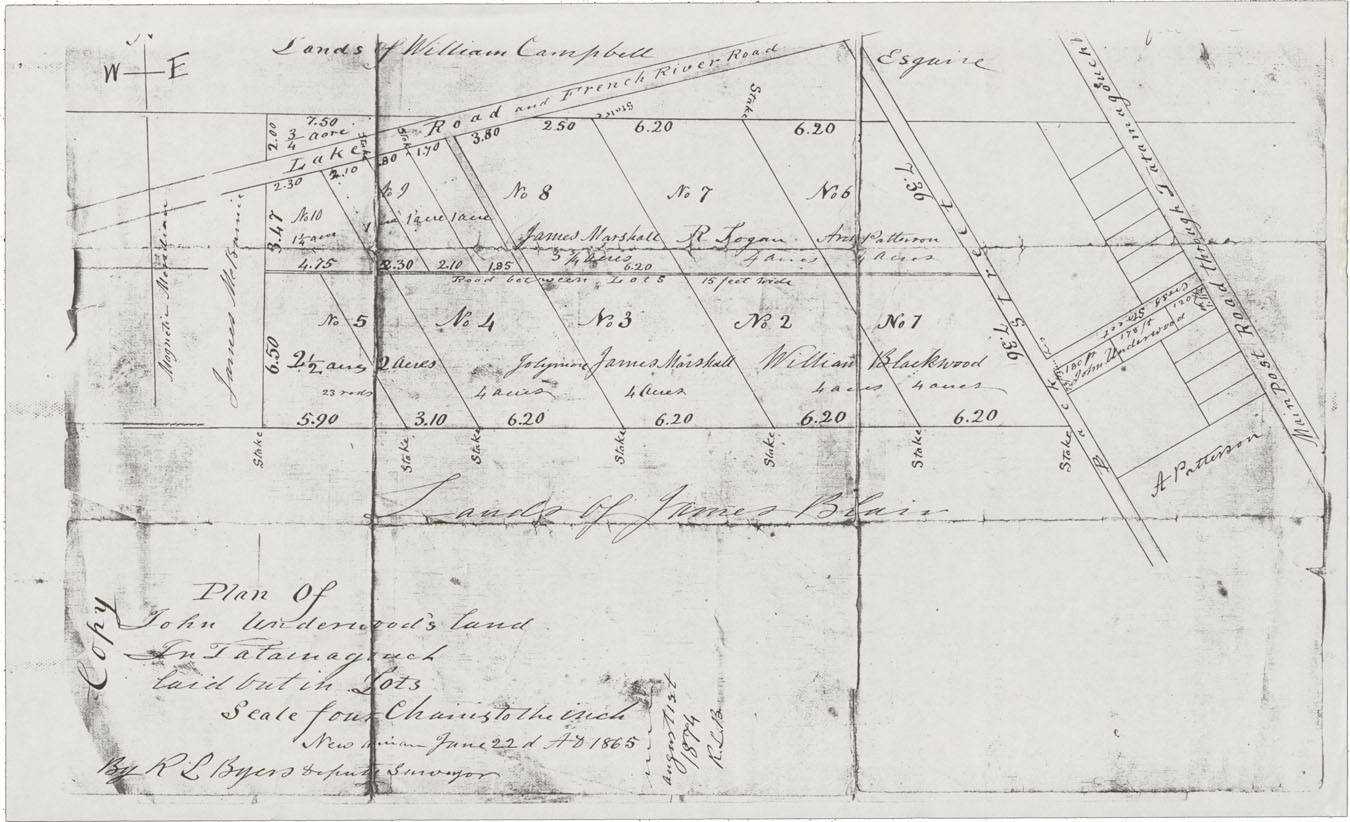 N
W E
Lands of William Campbell Esquire
Lake Road and French River Road
Main Post Road through Tatamagouch
7.50
3/4 acre
2.00
Stake
Stake
Stake
Stake
2.30
2.10
.80
1.70
3.80
2.50
6.20
6.20
7.36
No 10
1 1/4 acre
3.47
No 9
1 acre 1 acre
No 8
James Marshall
3 3/4 acres
No 7
R Logan
4 acres
No 6
Arch Patterson
4 acres
4.75
2.30
2.10
1.85
6.20
Road between Lots 15 feet wide
Magnetic Meridian
James McBurnie
6.50
No 5
2 1/2 acres
23 rods
2 acres
No 4
4 acres
No 3
James Marshall
4 acres
No 2
William Blackwood
4 acres
No 1
4 acres
7.36
Back Street
Cross Street
John Underwood
A Patterson
5.90
3.10
6.20
6.20
6.20
6.20
Stake
Stake
Stake
Stake
Stake
Stake
Stake
Lands of James Blair
Copy
Plan Of
John Underwood's land
In Tatamagouch
laid out in Lots
Scale four Chains to the inch
New annan June 22d AD 1865
By R L Byers Deputy Surveyor
august 1st
1874
R.L.B.